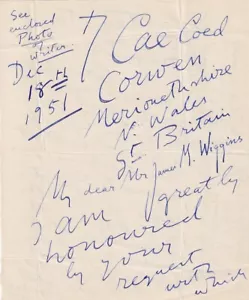 See
enclosed
Photo
of
Writer.
Dec
18th
1951
Cae Coed
Corwen
Merionethshire
N. Wales
Gt Britain
My dear Mr James M. Wiggins
I am greatly
honoured
by your
request
with
which